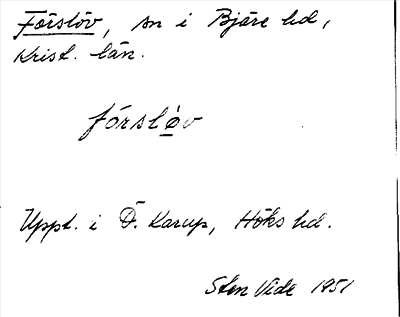 Förslöv, sn i Bjäre hd,
Krist. län.
fórslø̀v
Uppt. i Ö. Karup, Höks hd.
Sten Vide 1951